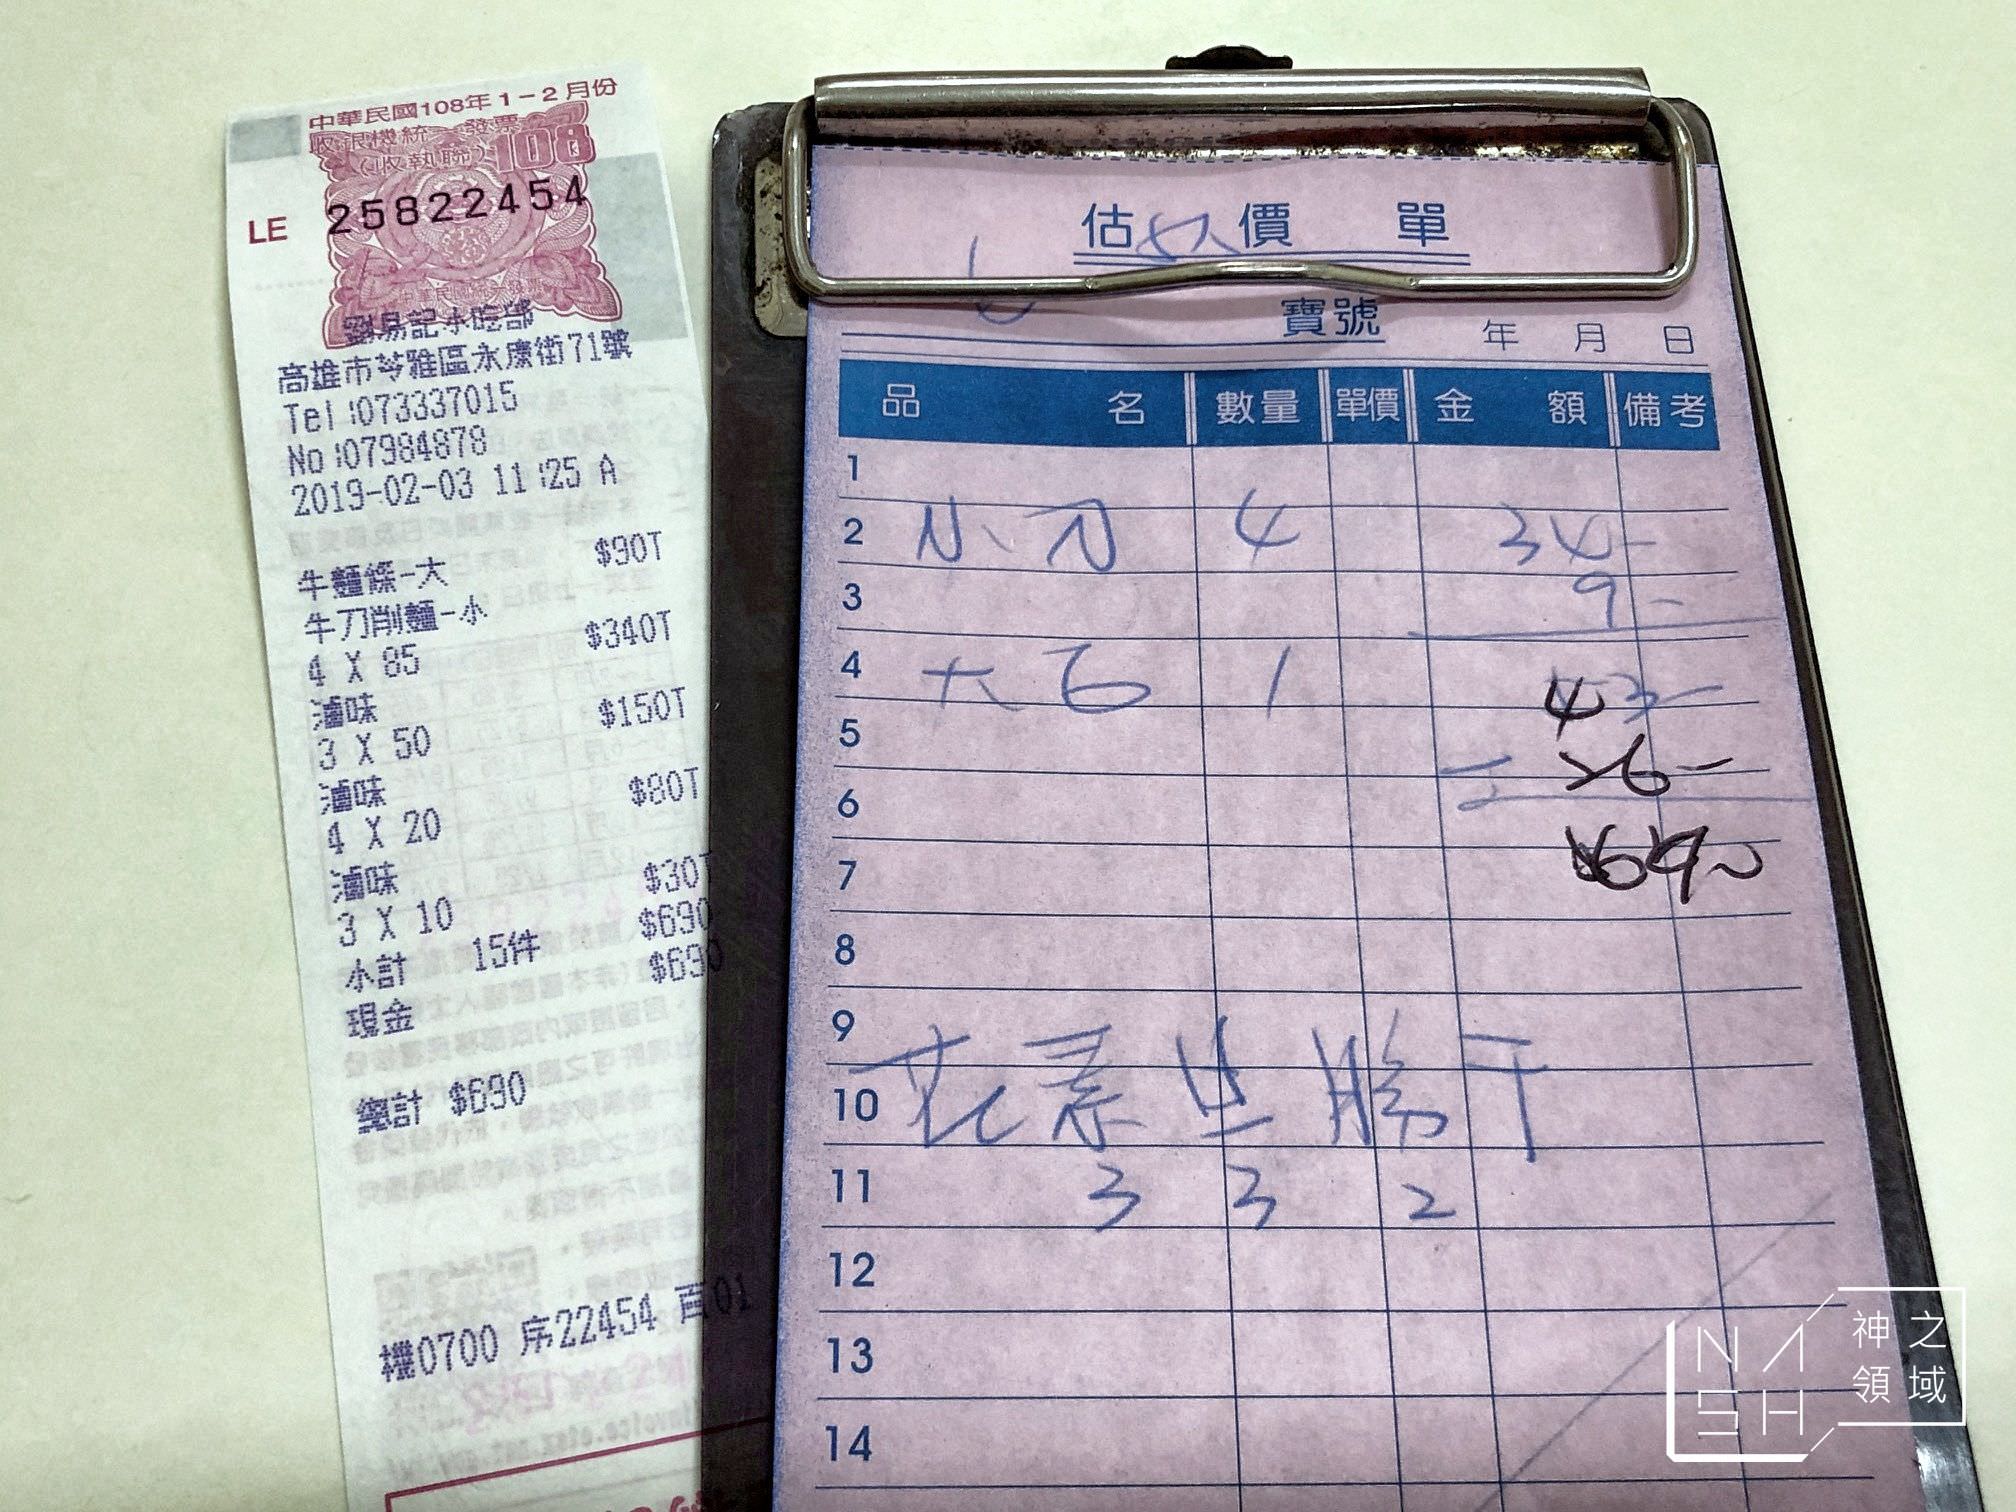 中華民國108年1-2月份
收銀機統一發票
(收執聯) 108
LE 25822454
劉易記小吃部
高雄市苓雅區永康街71號
Tel:073337015
No:07984878
2019-02-03 11:25 A
牛麵條-大 $90T
牛刀削麵-小
4 X 85 $340T
滷味
3 X 50 $150T
滷味
4 X 20 $80T
滷味
3 X 10 $30T
小計 15件 $690
現金 $690
總計 $690
機0700 序22454 頁01
估價單
寶號 年 月 日
品名 數量 單價 金額 備考
1
2 小刀 4 34-
3 9-
4 大 1 43-
5
6
7
8
9
10 花素 干
11 3 3 2
12
13
14
NASH 神之領域